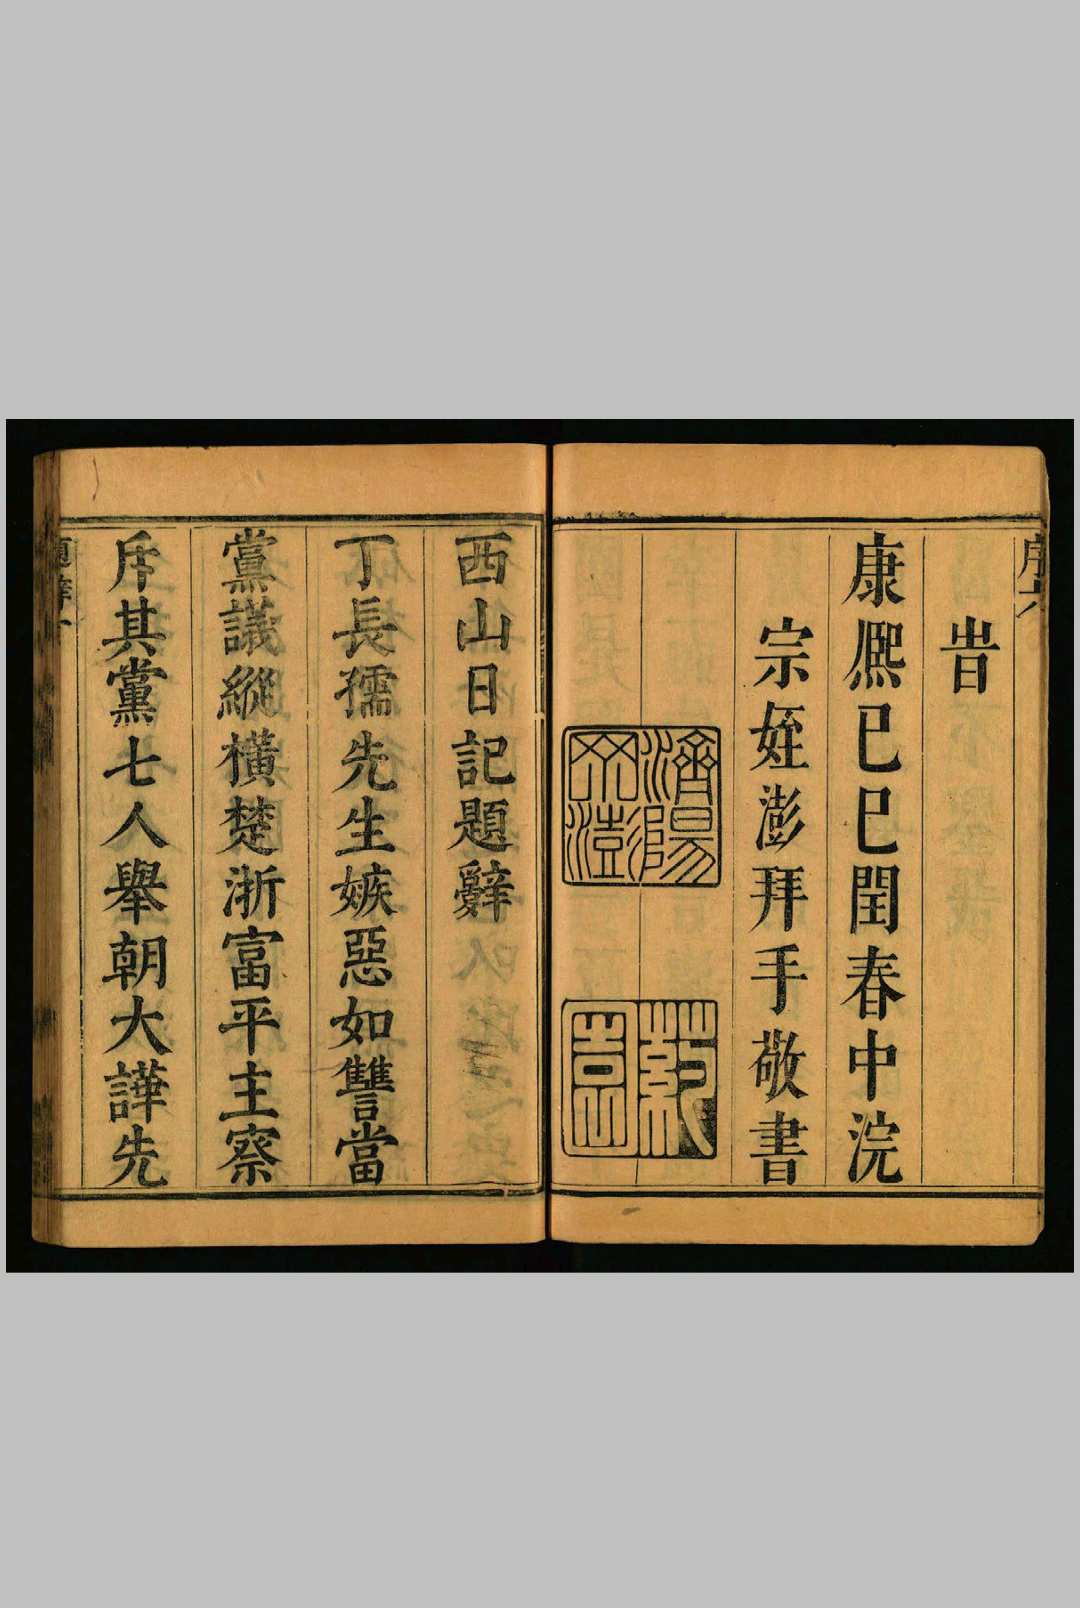 序六
旹
康熙己巳閏春中浣
宗姪澎拜手敬書
濟陽
丁澎
藥
園
西山日記題辭
丁長孺先生嫉惡如讐當
黨議縱橫楚浙富平主察
斥其黨七人舉朝大譁先
題辭一